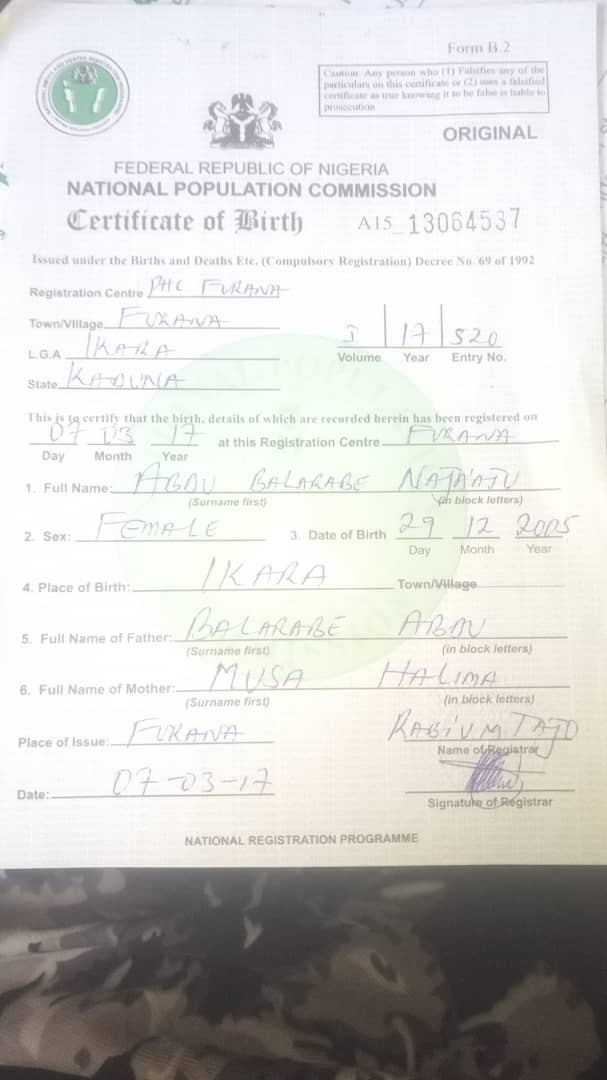 Form B.2
Caution: Any person who (1) Falsifies any of the
particulars on this certificate or (2) uses a falsified
certificate as true knowing it to be false is liable to
prosecution
ORIGINAL
FEDERAL REPUBLIC OF NIGERIA
NATIONAL POPULATION COMMISSION
Certificate of Birth A15 13064537
Issued under the Births and Deaths Etc. (Compulsory Registration) Decree No. 69 of 1992
Registration Centre PHC FURANA
Town/Village FURANA
I 17 520
L.G.A IKARA
Volume Year Entry No.
State KADUNA
This is to certify that the birth, details of which are recorded herein has been registered on
07 03 17 at this Registration Centre FURANA
Day Month Year
1. Full Name: ABDU BALARABE NAJA'ATU
(Surname first) (in block letters)
2. Sex: FEMALE 3. Date of Birth 29 12 2005
Day Month Year
4. Place of Birth: IKARA Town/Village
5. Full Name of Father: BALARABE ABDU
(Surname first) (in block letters)
6. Full Name of Mother: MUSA HALIMA
(Surname first) (in block letters)
Place of Issue: FURANA RABIU M TAJO
Name of Registrar
Date: 07-03-17
Signature of Registrar
NATIONAL REGISTRATION PROGRAMME